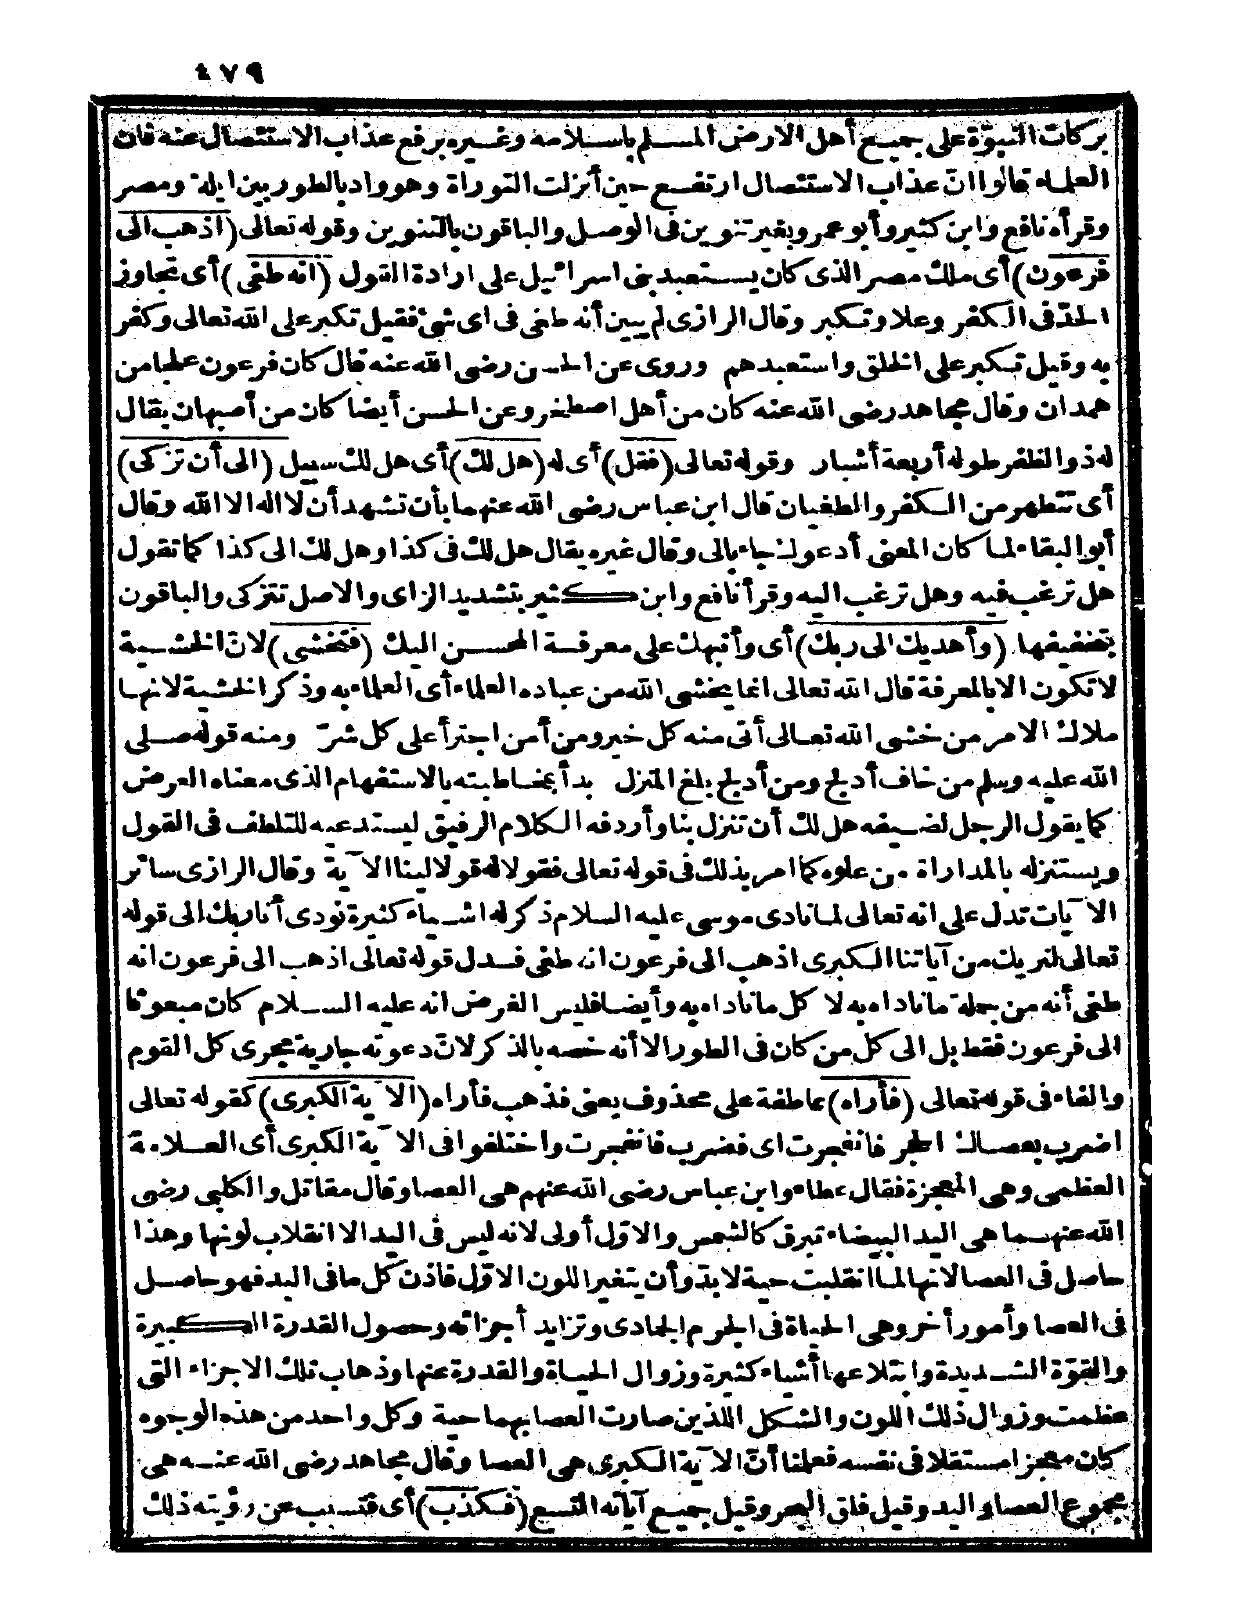 ٤٧٩
بركات النبوّة على جميع أهل الارض المسلم باسلامه وغيره برفع عذاب الاستئصال عنه فان
العلماء قالوا انّ عذاب الاستئصال ارتفع حين أنزلت التوراة وهو واد بالطور بين ايلة ومصر
وقرأه نافع وابن كثير وأبو عمرو بغير تنوين فى الوصل والباقون بالتنوين وقوله تعالى (اذهب الى
فرعون) أى ملك مصر الذى كان يستعبد بنى اسرائيل على ارادة القول (انه طغى) أى تجاوز
الحدّ فى الكفر وعلا وتكبر وقال الرازى لم يبين أنه طغى فى اى شئ فقيل تكبر على الله تعالى وكفر
به وقيل تكبر على الخلق واستعبدهم وروى عن الحسن رضى الله عنه قال كان فرعون علجا من
همدان وقال مجاهد رضى الله عنه كان من أهل اصطخر وعن الحسن أيضا كان من أصبهان يقال
له ذو الظفر طوله أربعة أشبار وقوله تعالى (فقل) أى له (هل لك) أى هل لك سبيل (الى أن تزكى)
أى تتطهر من الكفر والطغيان قال ابن عباس رضى الله عنهما بأن تشهد أن لا اله الا الله وقال
أبو البقاء لما كان المعنى أدعوك جاء بالى وقال غيره يقال هل لك فى كذا وهل لك الى كذا كما تقول
هل ترغب فيه وهل ترغب اليه وقرأ نافع وابن كثير بتشديد الزاى والاصل تتزكى والباقون
بتخفيفها (وأهديك الى ربك) أى وأنبهك على معرفة المحسن اليك (فتخشى) لانّ الخشية
لا تكون الا بالمعرفة قال الله تعالى انما يخشى الله من عباده العلماء أى العلماء به وذكر الخشية لانها
ملاك الامر من خشى الله تعالى أتى منه كل خير ومن أمن اجترأ على كل شرّ ومنه قوله صلى
الله عليه وسلم من خاف أدلج ومن أدلج بلغ المنزل بدأ بمخاطبته بالاستفهام الذى معناه العرض
كما يقول الرجل لضيفه هل لك أن تنزل بنا وأردفه الكلام الرفيق ليستدعيه للتلطف فى القول
ويستنزله بالمداراة من علوه كما امر بذلك فى قوله تعالى فقولا له قولا لينا الآية وقال الرازى سائر
الآيات تدل على انه تعالى لما نادى موسى عليه السلام ذكر له اشياء كثيرة نودى أنا ربك الى قوله
تعالى لنريك من آياتنا الكبرى اذهب الى فرعون انه طغى فدل قوله تعالى اذهب الى فرعون انه
طغى أنه من جملة ما ناداه به لا كل ما ناداه به وأيضا فليس الغرض انه عليه السلام كان مبعوثا
الى فرعون فقط بل الى كل من كان فى الطور الا أنه خصه بالذكر لانّ دعوته جارية مجرى كل القوم
والفاء فى قوله تعالى (فأراه) عاطفة على محذوف يعنى فذهب فأراه (الآية الكبرى) كقوله تعالى
اضرب بعصاك الحجر فانفجرت اى فضرب فانفجرت واختلفوا فى الآية الكبرى أى العلامة
العظمى وهى المعجزة فقال عطاء وابن عباس رضى الله عنهم هى العصا وقال مقاتل والكلبى رضى
الله عنهما هى اليد البيضاء تبرق كالشمس والاوّل أولى لانه ليس فى اليد الا انقلاب لونها وهذا
حاصل فى العصا لانها لما انقلبت حية لا بدّ وأن يتغير اللون الاوّل فاذن كل ما فى اليد فهو حاصل
فى العصا وأمور أخر وهى الحياة فى الجرم الجمادى وتزايد أجزائه وحصول القدرة الكبيرة
والقوّة الشديدة وابتلاعها أشياء كثيرة وزوال الحياة والقدرة عنها وذهاب تلك الاجزاء التى
عظمت وزوال ذلك اللون والشكل اللذين صارت العصا بهما حية وكل واحد من هذه الوجوه
كان معجزا مستقلا فى نفسه فعلمنا أنّ الآية الكبرى هى العصا وقال مجاهد رضى الله عنه هى
مجموع العصا واليد وقيل فلق البحر وقيل جميع آياته التسع (فكذب) أى فتسبب عن رؤيته ذلك